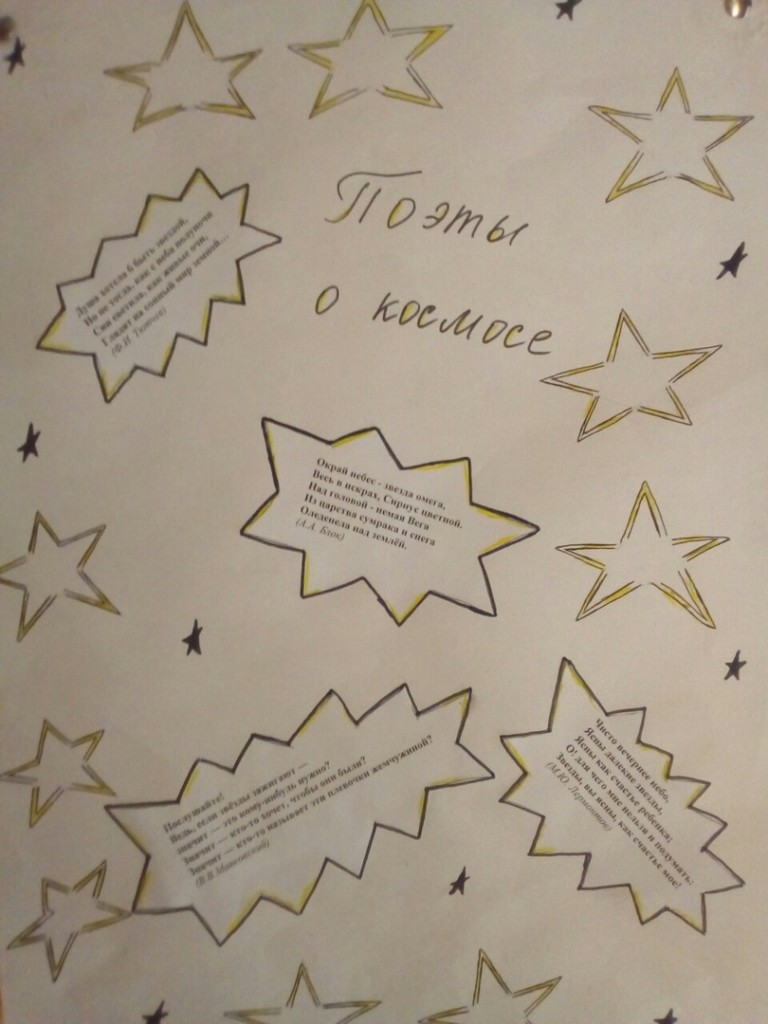 Поэты
о космосе
Душа хотела б быть звездой,
Но не тогда, как с неба полуночи
Сии светила, как живые очи,
Глядят на сонный мир земной...
(Ф.И. Тютчев)
Окрай небес - звезда омега,
Весь в искрах, Сириус цветной.
Над головой - немая Вега
Из царства сумрака и снега
Оледенела над землёй.
(А.А. Блок)
Послушайте!
Ведь, если звёзды зажигают —
значит — это кому-нибудь нужно?
Значит — кто-то хочет, чтобы они были?
Значит — кто-то называет эти плевочки жемчужиной?
(В.В. Маяковский)
Чисто вечернее небо,
Ясны далекие звезды,
Ясны как счастье ребенка;
О! для чего мне нельзя и подумать:
Звезды, вы ясны, как счастье мое!
(М.Ю. Лермонтов)